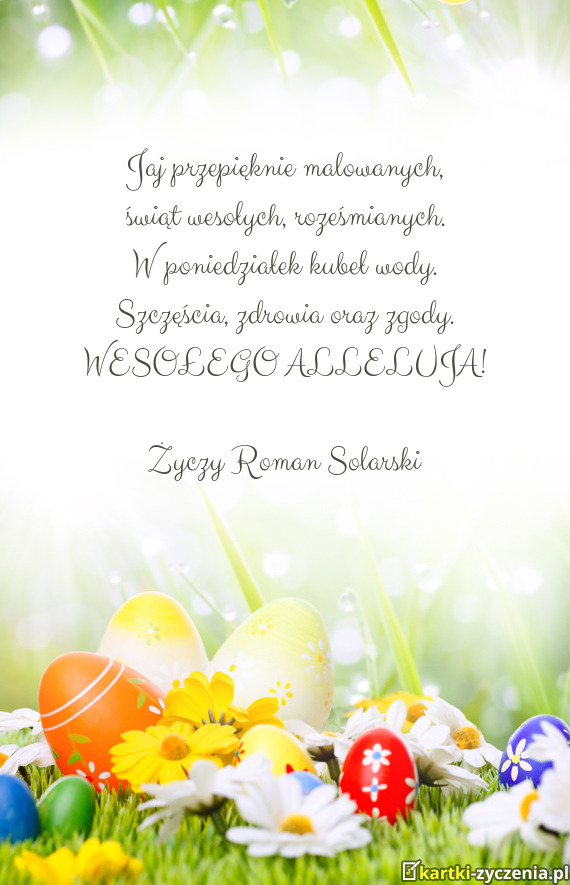 Jaj przepięknie malowanych,
świąt wesołych, roześmianych.
W poniedziałek kubeł wody.
Szczęścia, zdrowia oraz zgody.
WESOŁEGO ALLELUJA!
Życzy Roman Solarski
kartki-zyczenia.pl